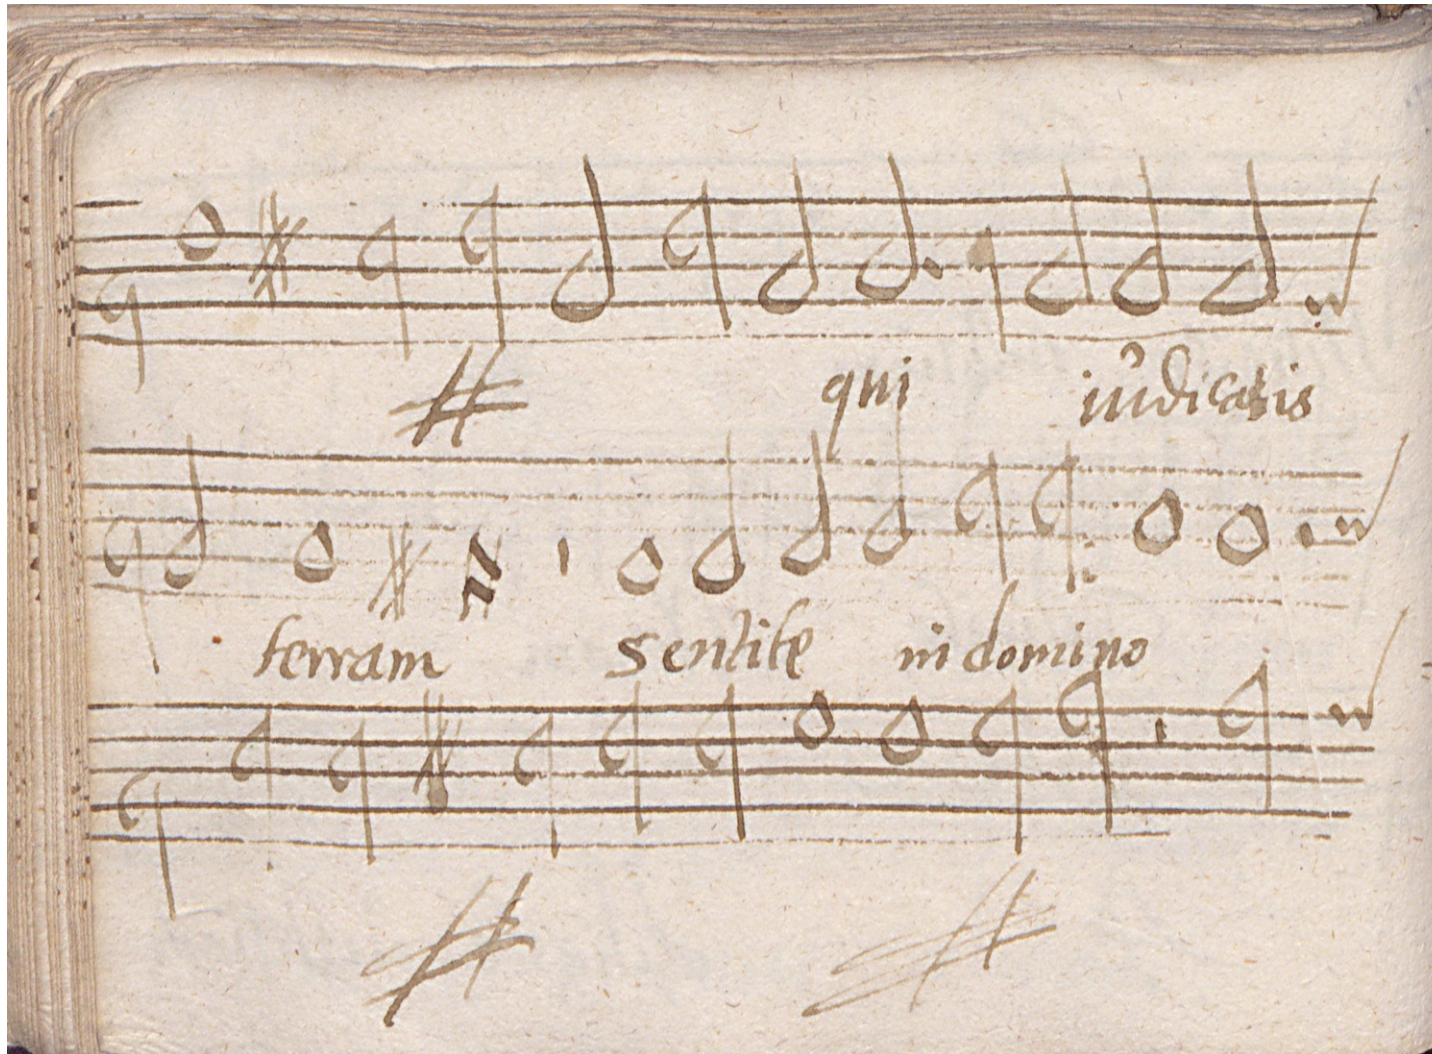 qui iudicatis
terram sentite in domino